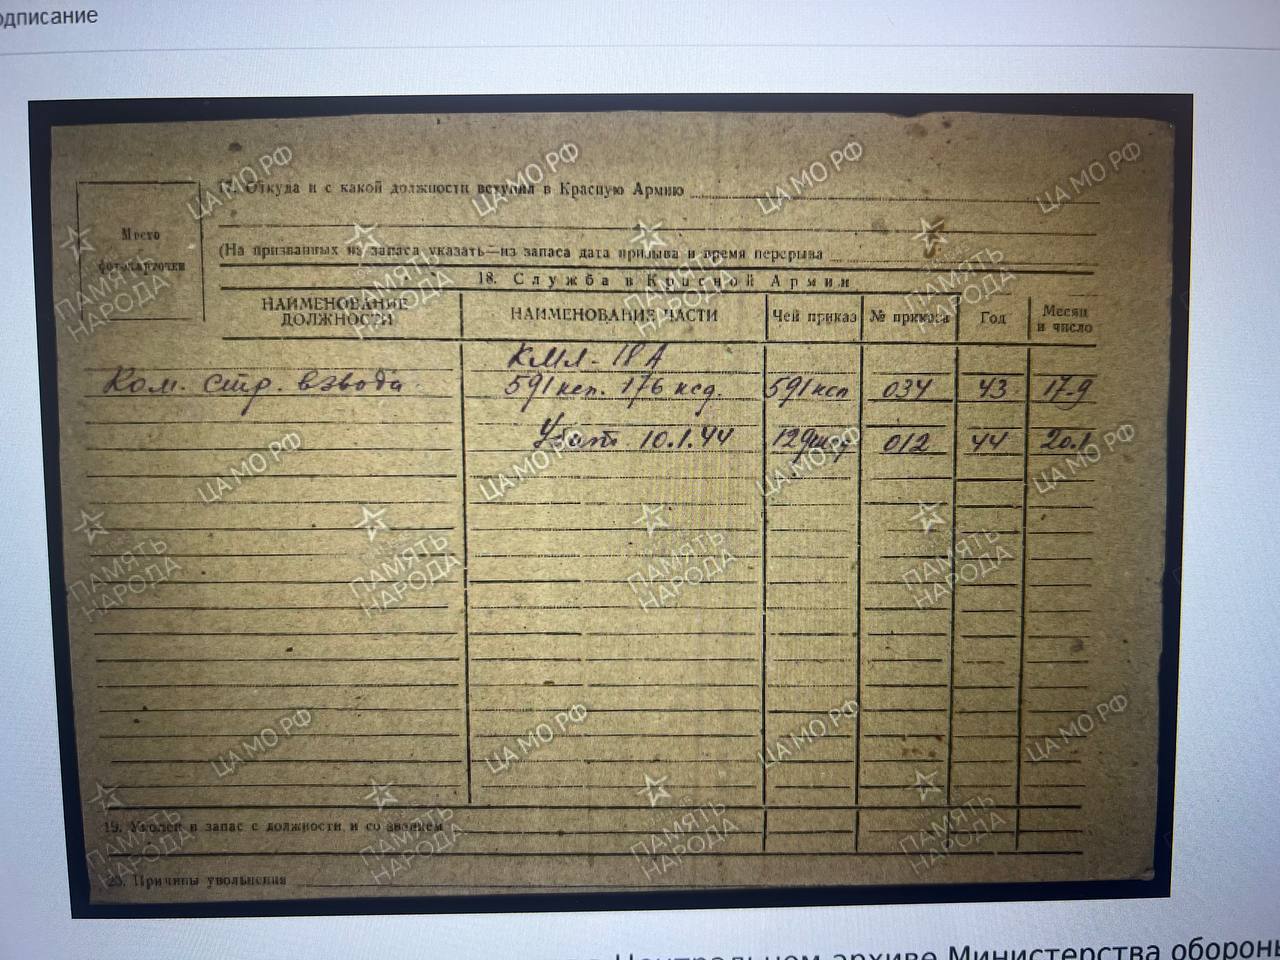 одписание
17. Откуда и с какой должности вступил в Красную Армию
Место
фотокарточки
(На призванных из запаса указать—из запаса дата призыва и время перерыва
18. Служба в Красной Армии
НАИМЕНОВАНИЕ ДОЛЖНОСТИ НАИМЕНОВАНИЕ ЧАСТИ Чей приказ № приказа Год Месяц и число
18 А
Ком. стр. взвода 591 ксп. 176 ксд. 591 ксп 034 43 17.9
Убит 10.1.44 012 44 20.1
19. Уволен в запас с должности и со званием
20. Причины увольнения
ЦА МО РФ
ПАМЯТЬ
НАРОДА
Центральном архиве Министерства оборон